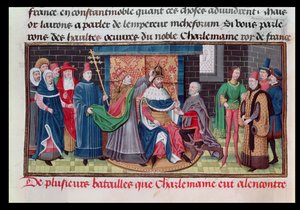 france en constantinoble quant ces choses aduindrent. Mais
or lairons a parler de lempereur nicheforum. Si vous parle
rons des haultes oeuures du noble Charlemaine roy de france
De plusieurs batailles que Charlemaine eut alencontre